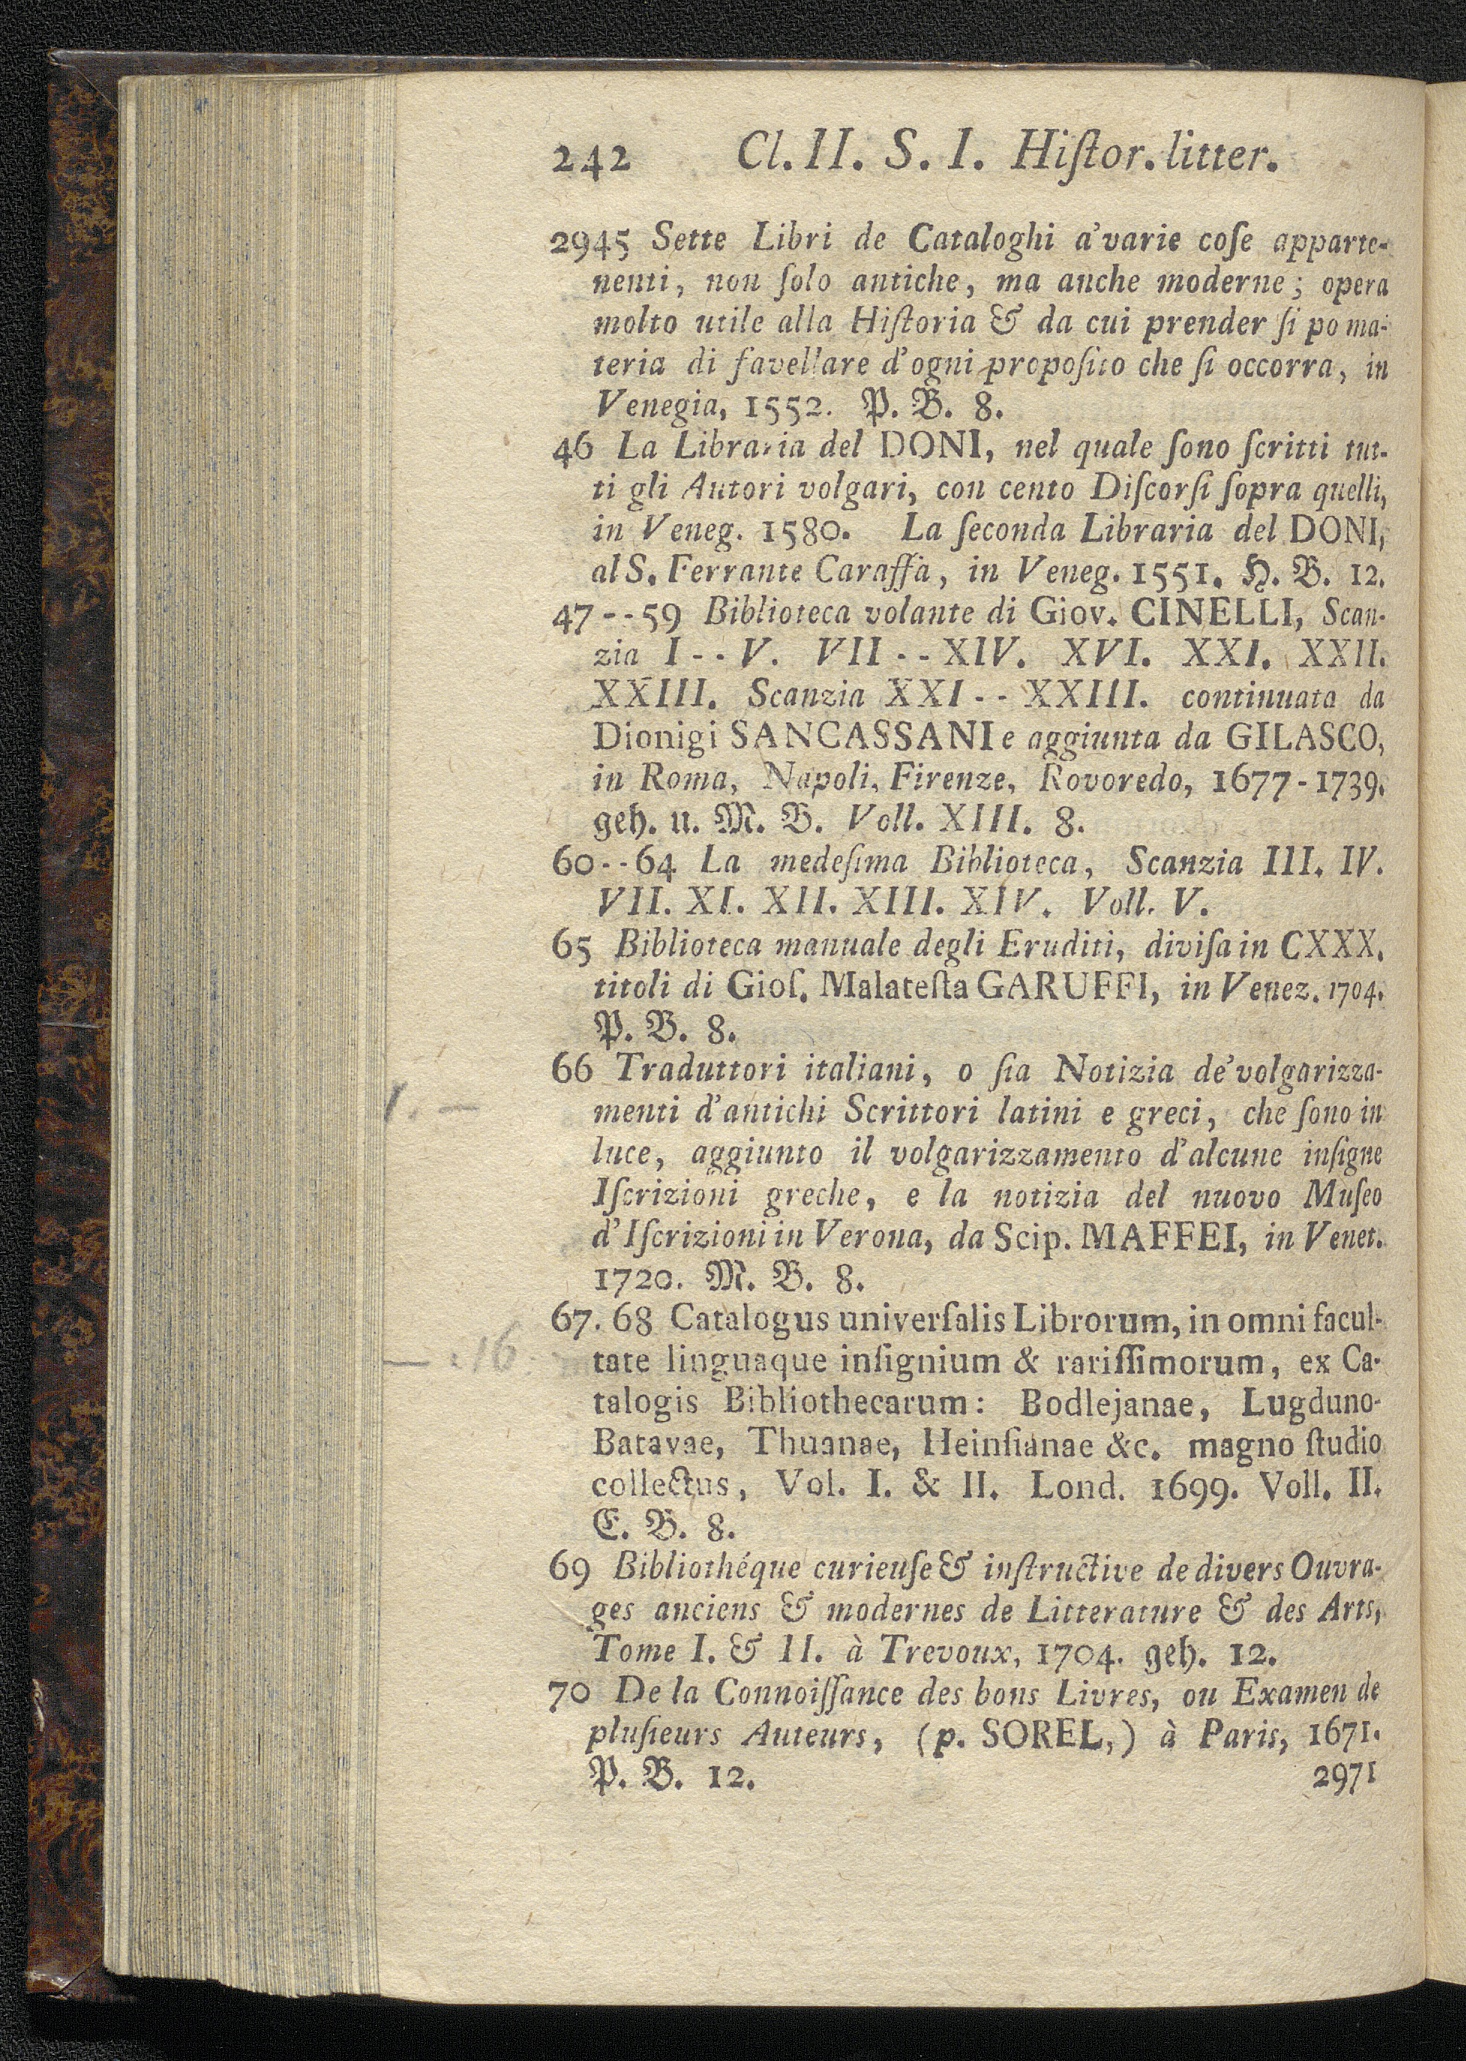 242 Cl. II. S. I. Hiſtor. litter.
2945 Sette Libri de Cataloghi a'varie coſe apparte-
nenti, non ſolo antiche, ma anche moderne; opera
molto utile alla Hiſtoria & da cui prender ſi po ma-
teria di favellare d'ogni propoſito che ſi occorra, in
Venegia, 1552. P. B. 8.
46 La Libraria del DONI, nel quale ſono ſcritti tut-
ti gli Autori volgari, con cento Diſcorſi ſopra quelli,
in Veneg. 1580. La ſeconda Libraria del DONI,
al S. Ferrante Caraffa, in Veneg. 1551. H. B. 12.
47 - - 59 Biblioteca volante di Giov. CINELLI, Scan-
zia I - - V. VII - - XIV. XVI. XXI. XXII.
XXIII. Scanzia XXI - - XXIII. continuata da
Dionigi SANCASSANI e aggiunta da GILASCO,
in Roma, Napoli, Firenze, Rovoredo, 1677 - 1739.
geh. u. M. B. Voll. XIII. 8.
60 - - 64 La medeſima Biblioteca, Scanzia III. IV.
VII. XI. XII. XIII. XIV. Voll. V.
65 Biblioteca manuale degli Eruditi, diviſa in CXXX.
titoli di Gioſ. Malateſta GARUFFI, in Venez. 1704.
P. B. 8.
66 Traduttori italiani, o ſia Notizia de'volgarizza-
1. — menti d'antichi Scrittori latini e greci, che ſono in
luce, aggiunto il volgarizzamento d'alcune inſigne
Iſcrizioni greche, e la notizia del nuovo Muſeo
d'Iſcrizioni in Verona, da Scip. MAFFEI, in Venet.
1720. M. B. 8.
67. 68 Catalogus univerſalis Librorum, in omni facul-
— . 16 tate linguaque inſignium & rariſſimorum, ex Ca-
talogis Bibliothecarum: Bodlejanae, Lugduno-
Batavae, Thuanae, Heinſianae &c. magno ſtudio
collectus, Vol. I. & II. Lond. 1699. Voll. II.
E. B. 8.
69 Bibliothéque curieuſe & inſtructive de divers Ouvra-
ges anciens & modernes de Litterature & des Arts,
Tome I. & II. à Trevoux, 1704. geh. 12.
70 De la Connoiſſance des bons Livres, ou Examen de
pluſieurs Auteurs, (p. SOREL,) à Paris, 1671.
P. B. 12. 2971